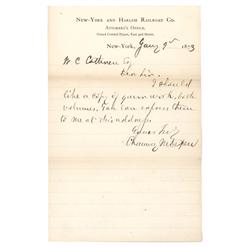 New-York and Harlem Railroad Co.
Attorney's Office,
Grand Central Depot, East 42d Street.
New-York, Jany 9th 1873
W C
Esq
Dear Sir.
I should
like a copy of your work, both
volumes. You can express them
to me at this address
Yours truly
Chauncey M Depew